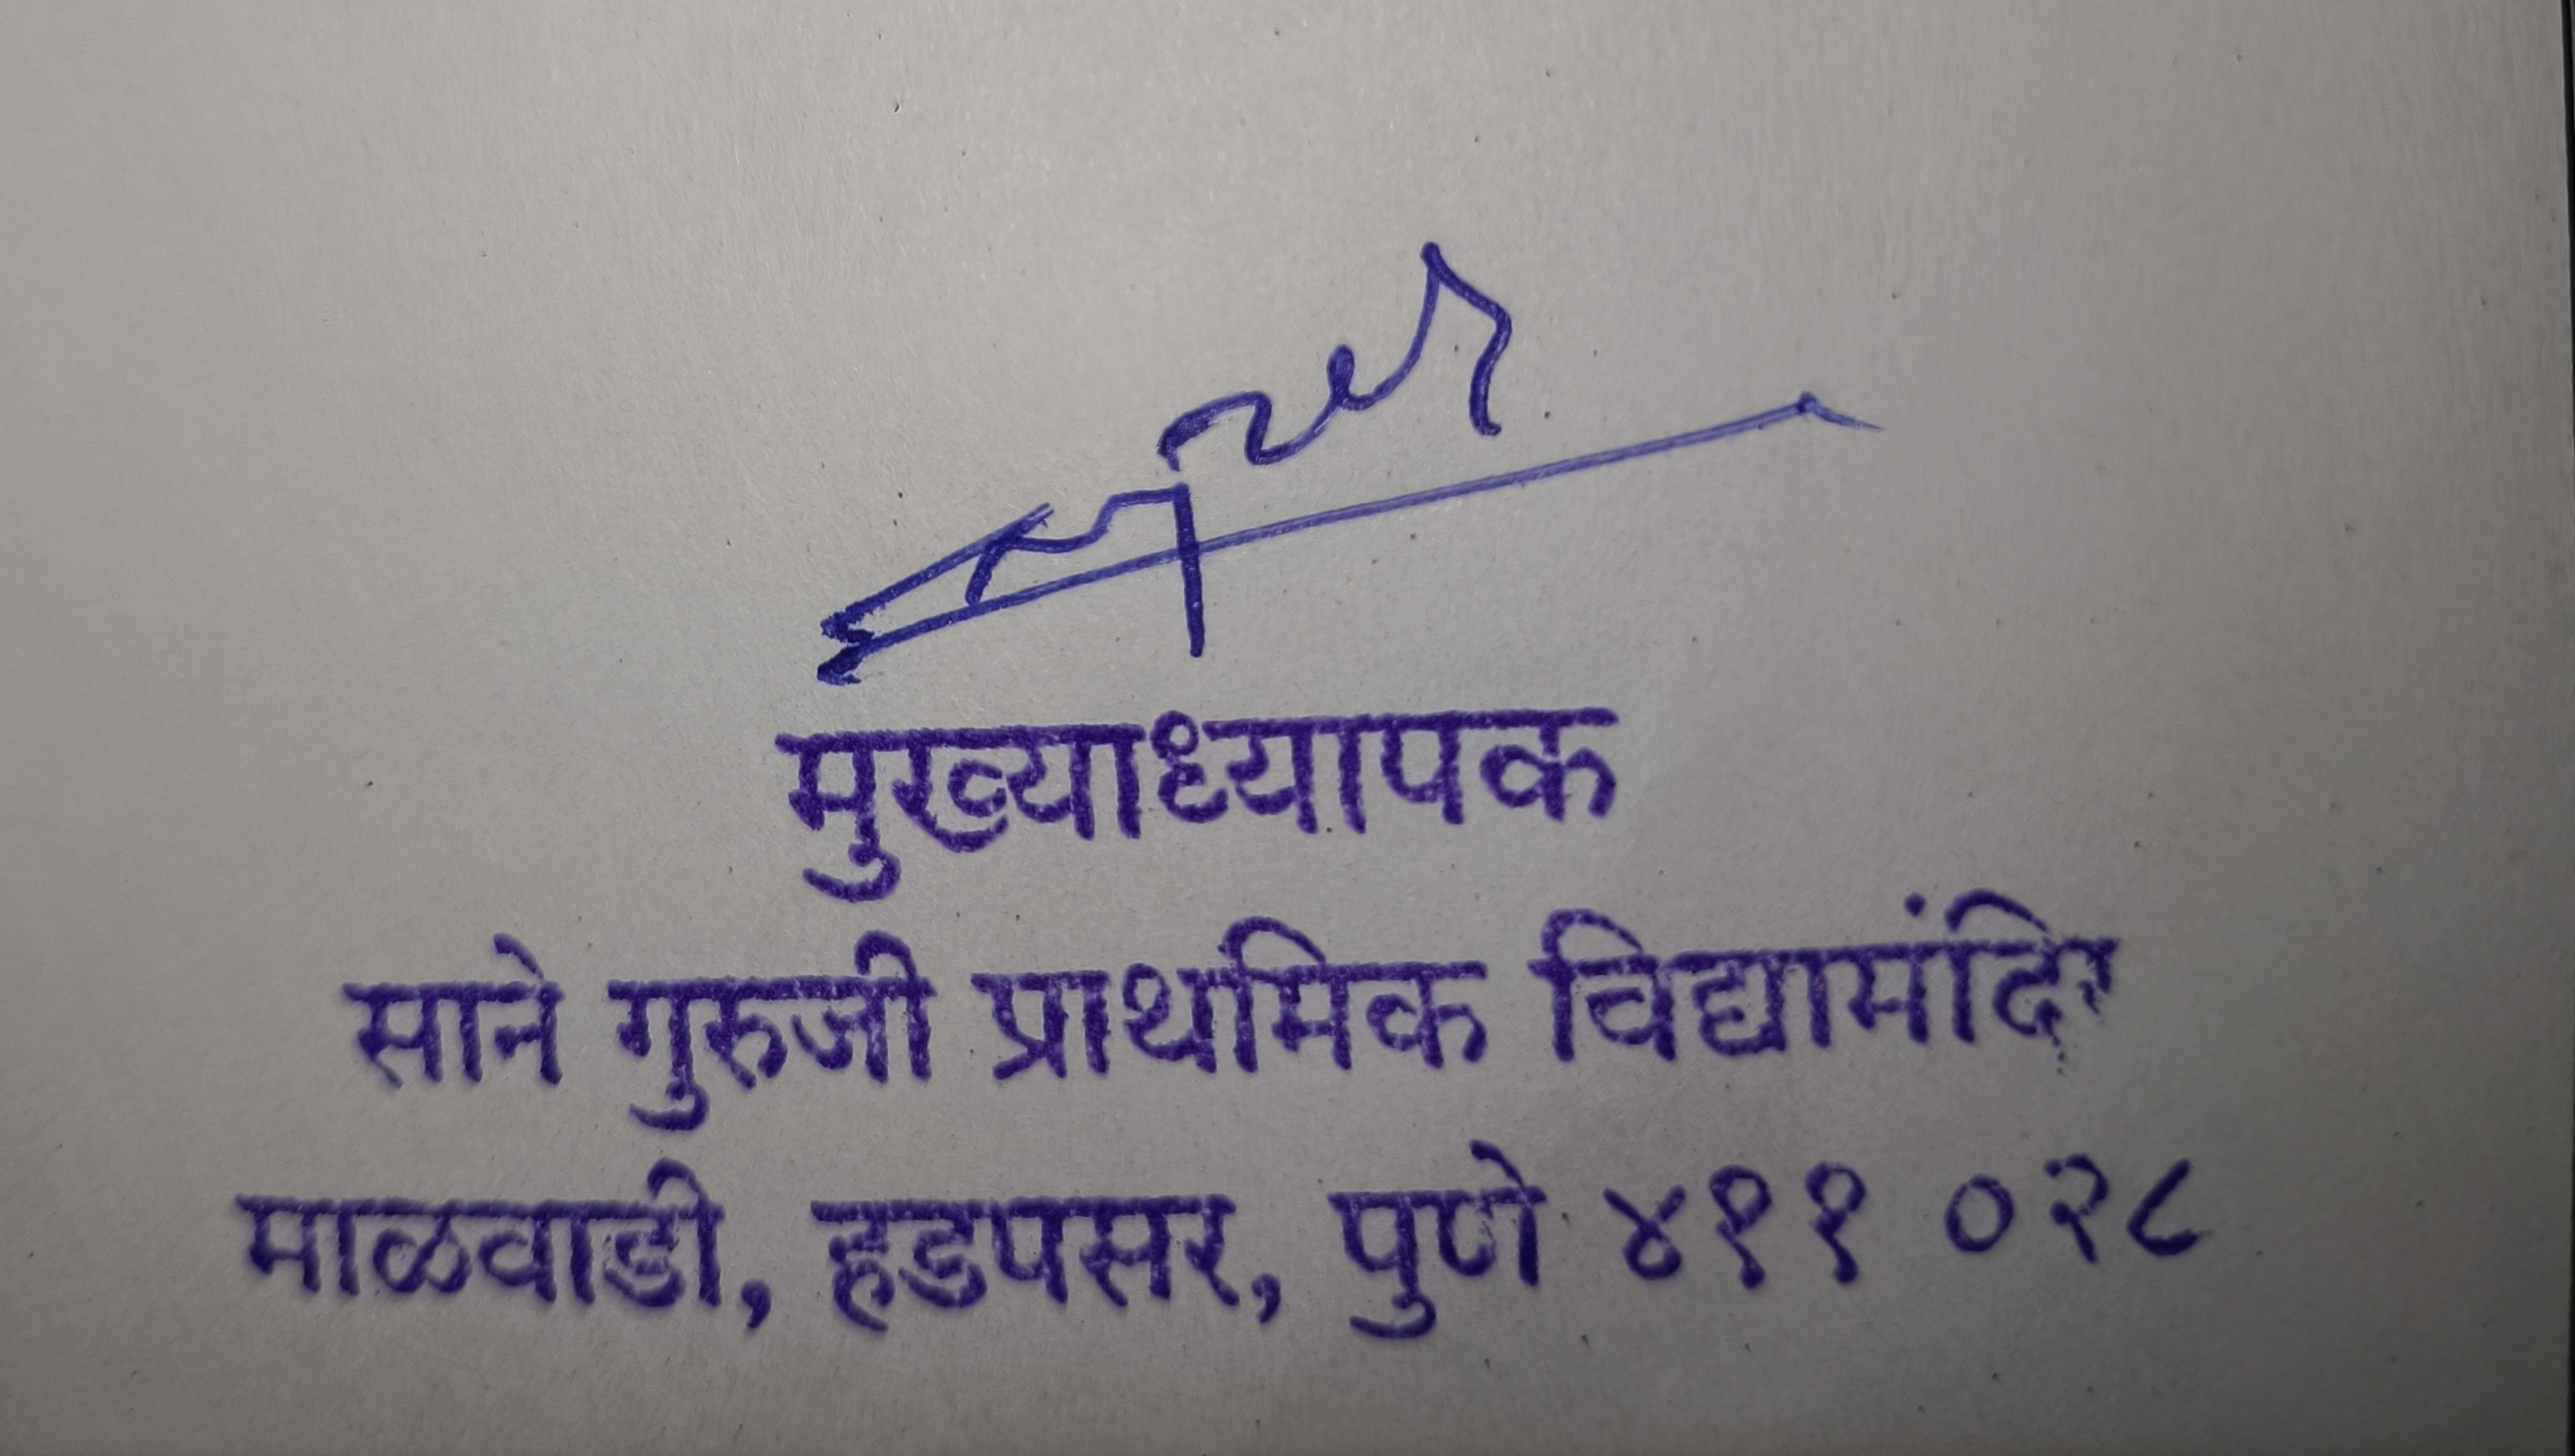 मुख्याध्यापक
साने गुरुजी प्राथमिक विद्यामंदिर
माळवाडी, हडपसर, पुणे ४११ ०२८